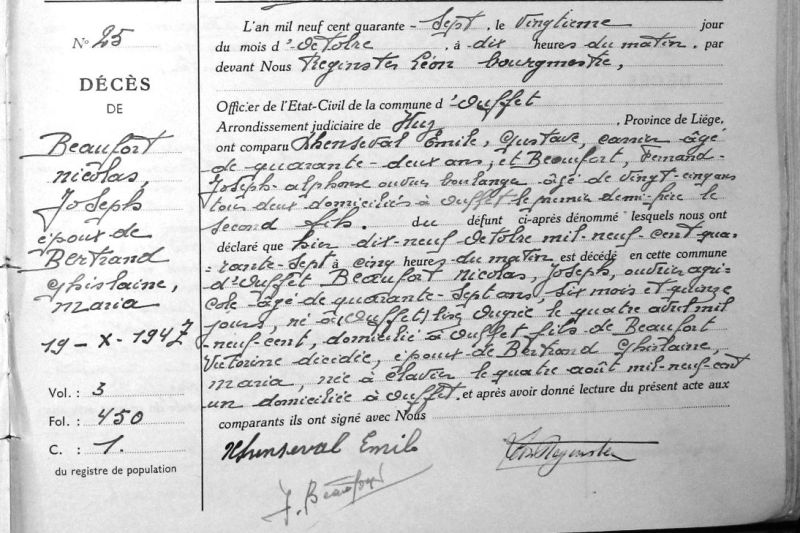 N° 25
DÉCÈS
DE
Beaufort
nicolas,
Joseph
époux de
Bertrand
Ghislaine,
maria
19 - X - 1947
Vol. : 3
Fol. : 450
C. : 1.
du registre de population
L'an mil neuf cent quarante - sept, le vingtieme jour
du mois d'octobre, à dix heures du matin, par
devant Nous Reginster Léon bourgmestre,
Officier de l'Etat-Civil de la commune d'Ouffet
Arrondissement judiciaire de Huy, Province de Liége,
ont comparu Thenseval Emile, Gustave, carrier âgé
de quarante-deux ans, et Beaufort, Fernand-
Joseph-alphonse ouvrier boulanger âgé de vingt-cinq ans
tous deux domiciliés à Ouffet le premier demi-frère le
second fils. du défunt ci-après dénommé lesquels nous ont
déclaré que hier dix-neuf octobre mil-neuf-cent qua-
rante-sept à cinq heures du matin est décédé en cette commune
d'Ouffet Beaufort Nicolas, Joseph, ouvrier agri-
cole âgé de quarante-sept ans, six mois et quinze
jours, né à (Ouffet) le quatre avril mil
neuf cent, domicilié à Ouffet fils de Beaufort
Victorine décédée, époux de Bertrand Ghislaine,
maria, née à Clavier le quatre août mil-neuf-cent
un domiciliée à Ouffet. et après avoir donné lecture du présent acte aux
comparants ils ont signé avec Nous
Thenseval Emile
F. Beaufort